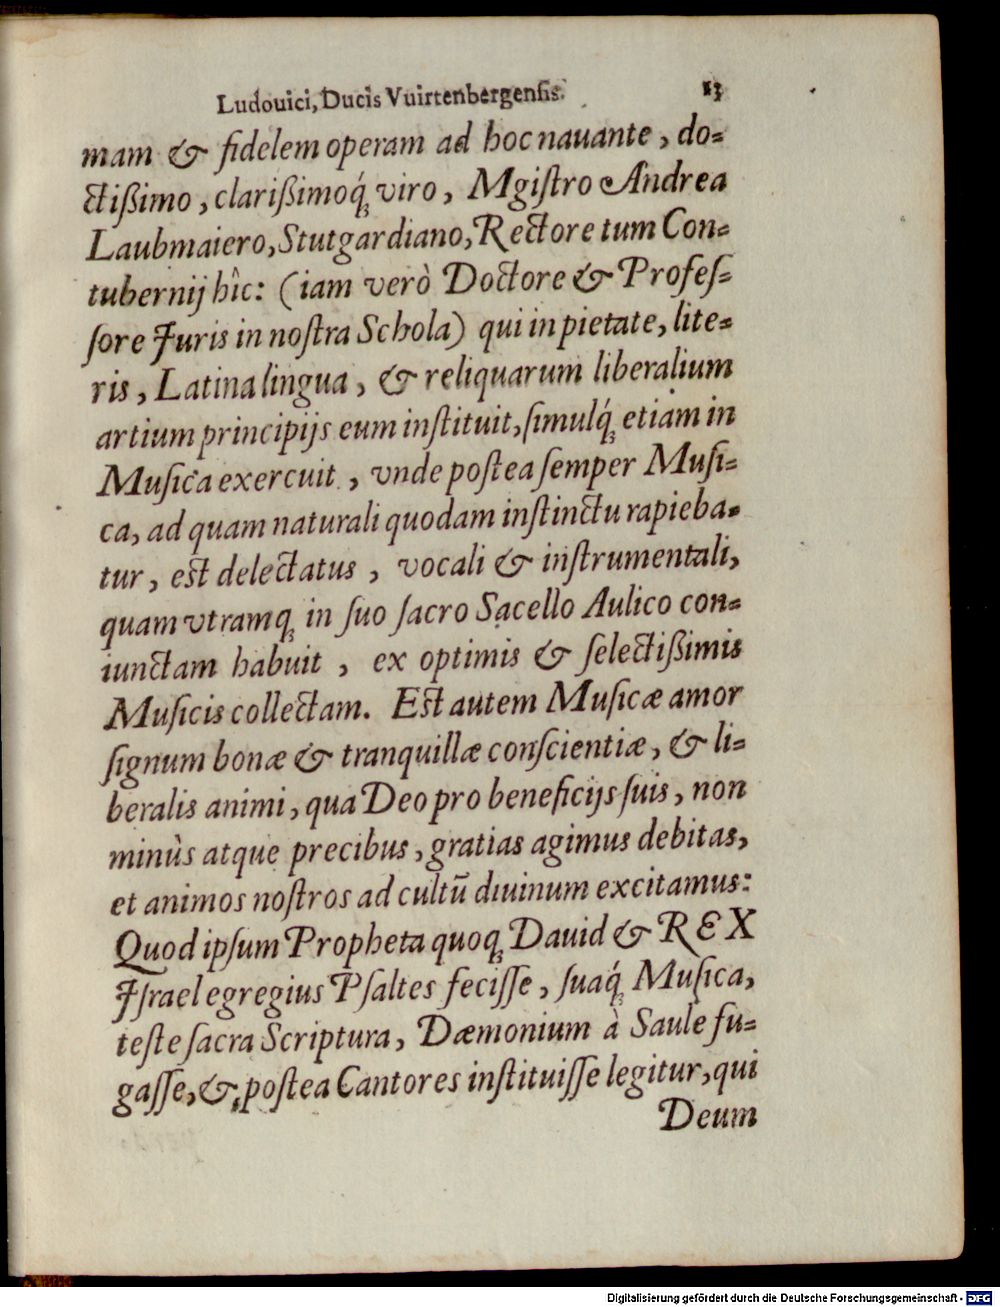 Ludouici, Ducis Vuirtenbergensis. 13
mam & fidelem operam ad hoc nauante, do=
ctißimo, clarißimoq́ꝫ viro, Mgiſtro Andrea
Laubmaiero, Stutgardiano, Rectore tum Con=
tubernij hîc: (iam verò Doctore & Profeſ=
ſore Juris in noſtra Schola) qui in pietate, lite=
ris, Latina lingua, & reliquarum liberalium
artium principijs eum inſtituit, ſimulq́ꝫ etiam in
Muſica exercuit, vnde poſtea ſemper Muſi=
ca, ad quam naturali quodam inſtinctu rapieba=
tur, eſt delectatus, vocali & inſtrumentali,
quam vtramqꝫ in ſuo ſacro Sacello Aulico con=
iunctam habuit, ex optimis & ſelectißimis
Muſicis collectam. Eſt autem Muſicæ amor
ſignum bonæ & tranquillæ conſcientiæ, & li=
beralis animi, qua Deo pro beneficijs ſuis, non
minùs atque precibus, gratias agimus debitas,
et animos noſtros ad cultũ diuinum excitamus:
Quod ipſum Propheta quoqꝫ Dauid & REX
Jſrael egregius Pſaltes feciſſe, ſuaq́ꝫ Muſica,
teſte ſacra Scriptura, Dæmonium à Saule fu=
gaſſe, & poſtea Cantores inſtituiſſe legitur, qui
Deum
Digitalisierung gefördert durch die Deutsche Forschungsgemeinschaft - DFG